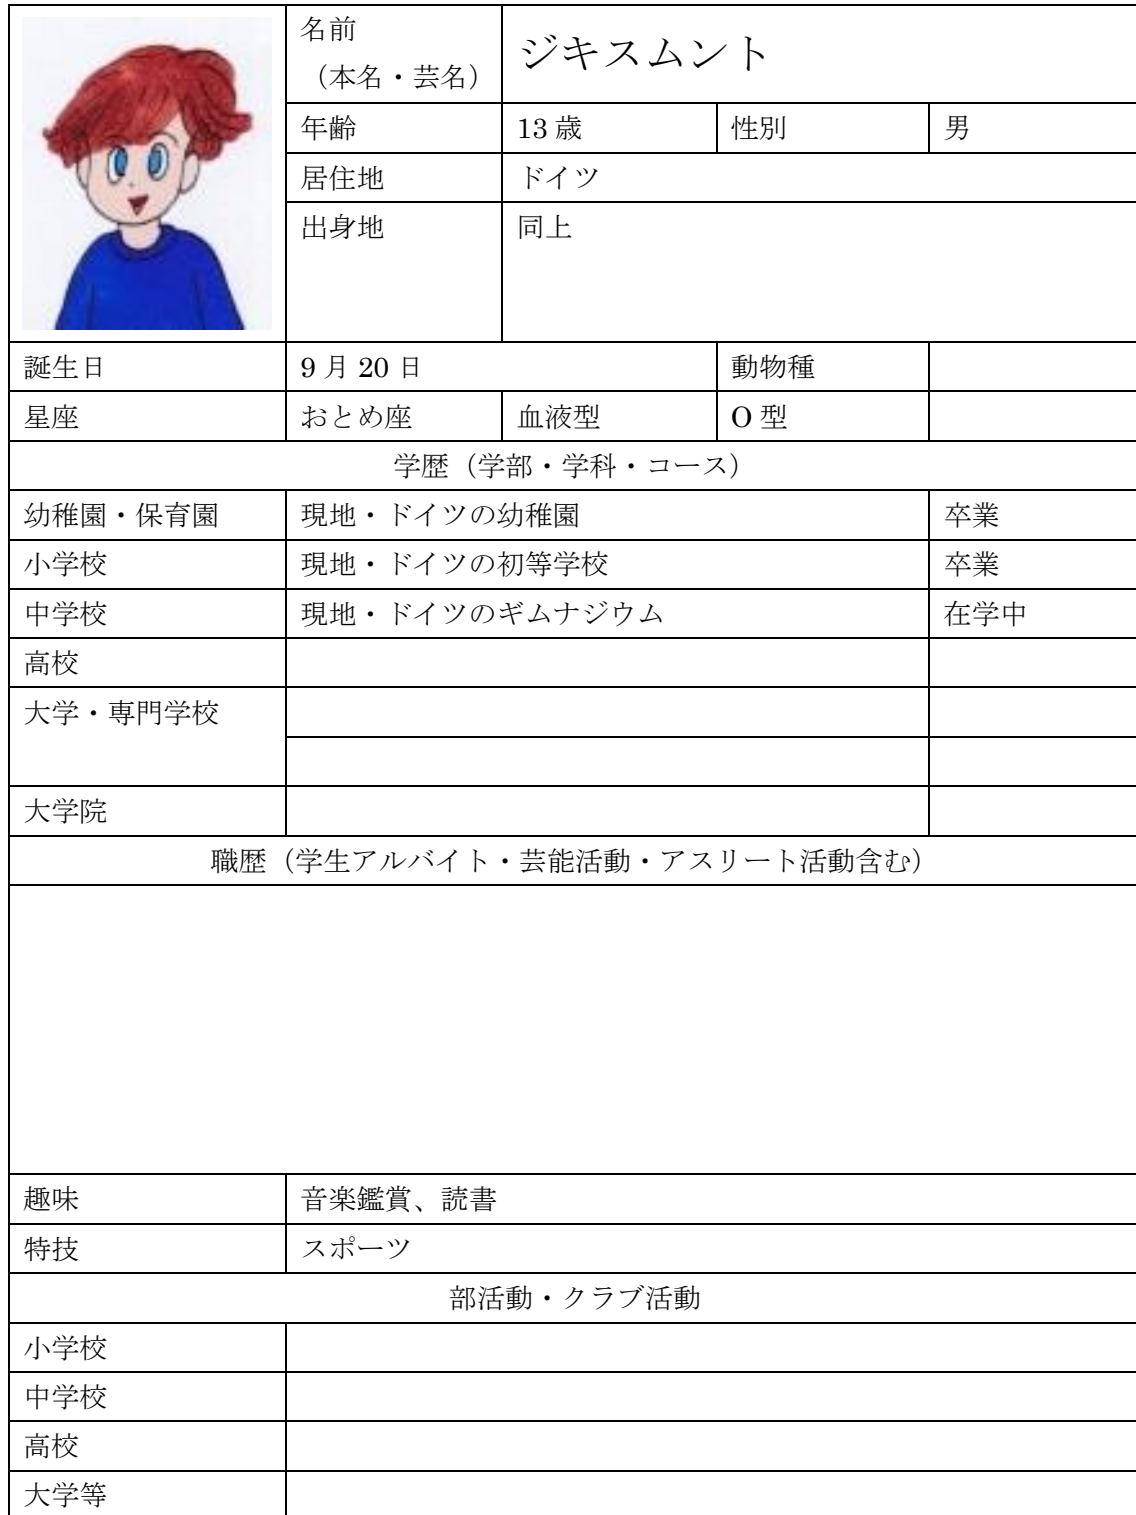 名前
（本名・芸名）
ジキスムント
年齢 13歳 性別 男
居住地 ドイツ
出身地 同上
誕生日 9月20日 動物種
星座 おとめ座 血液型 O型
学歴（学部・学科・コース）
幼稚園・保育園 現地・ドイツの幼稚園 卒業
小学校 現地・ドイツの初等学校 卒業
中学校 現地・ドイツのギムナジウム 在学中
高校
大学・専門学校
大学院
職歴（学生アルバイト・芸能活動・アスリート活動含む）
趣味 音楽鑑賞、読書
特技 スポーツ
部活動・クラブ活動
小学校
中学校
高校
大学等